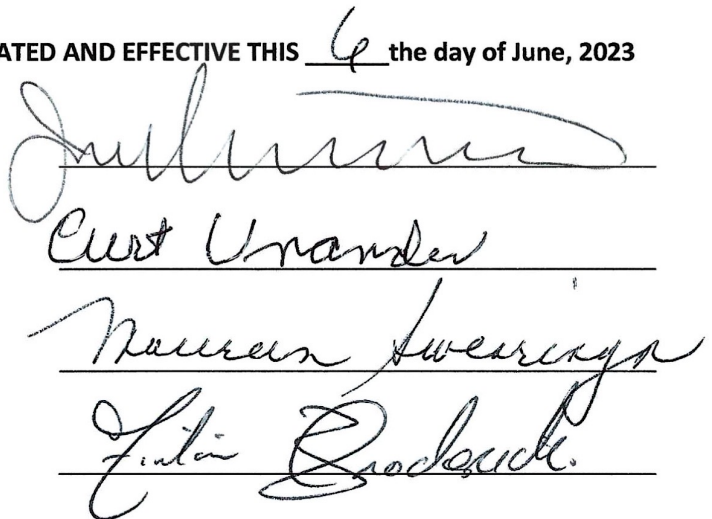 ATED AND EFFECTIVE THIS 6 the day of June, 2023
Curt Unander
Maureen Swearingen
Fintan Broderick.